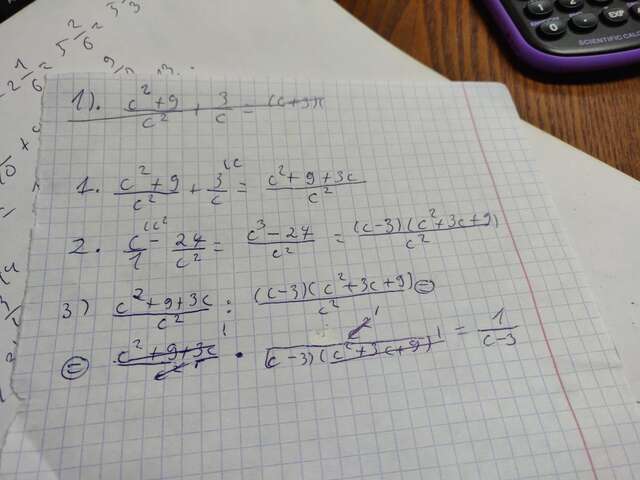 1). (c²+9)/c² + 3/c =
1. (c²+9)/c² + 3/c^(c = (c²+9+3c)/c²
2. c/1^(c² - 27/c² = (c³-27)/c² = (c-3)(c²+3c+9)/c²
3) (c²+9+3c)/c² : (c-3)(c²+3c+9)/c² =
= (c²+9+3c)/c² · c²/(c-3)(c²+3c+9) = 1/(c-3)
EXP
SCIENTIFIC CALC